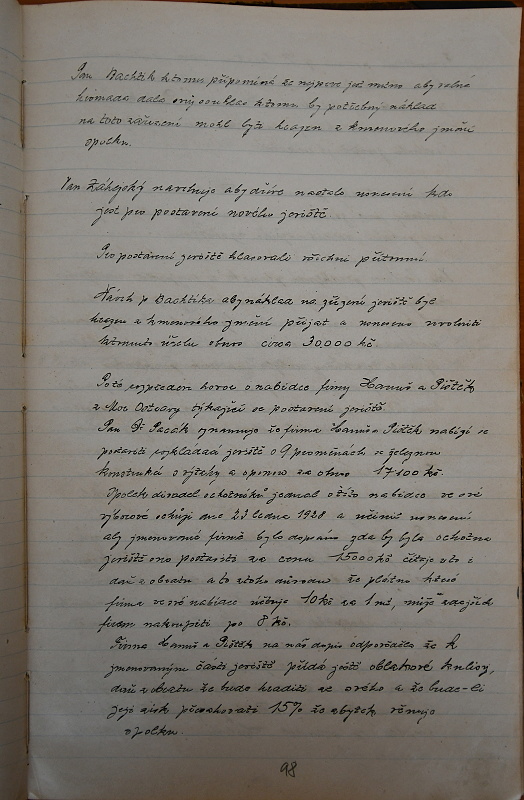 Pan Bachtík k tomu připomíná že nejprve jest nutno aby valná
hromada dala svůj souhlas k tomu by potřebný náklad
na toto zařízení mohl býti hrazen z kmenového jmění
spolku.
Pan Záhejský navrhuje aby dříve nastalo usnesení kdo
jest pro postavení nového jeviště
Pro postavení jeviště hlasovali všichni přítomní
Návrh p Bachtíka aby náklad na zřízení jeviště byl
hrazen z kmenového jmění přijat a usneseno uvolniti
k tomuto účelu obnos circa 30.000 kč.
Poté rozpreden hovor o nabídce firmy Hanuš a Pištěk
z Mor Ostravy týkající se postavení jeviště.
Pan Dr Pacák oznamuje že firma Hanuš a Pištěk nabízí se
postaviti rozkládací jeviště o 9 proměnách se železnou
konstrukcí s výtahy a oponou za obnos 17.100 kč.
Spolek divadel ochotníků jednal o této nabídce ve své
výborové schůzi dne 23 ledna 1938 a učinil usnesení
aby jmenované firmě bylo dopsáno zda by byla ochotna
jeviště ono postaviti za cenu 15000 kč čítaje v to i
daň z obratu a to z toho důvodu že plátno které
firma ve své nabídce účtuje 10 kč za 1 m², může zdejší
firem nakoupiti po 8 kč.
Firma Hanuš a Pištěk na náš dopis odpověděla že k
jmenovaným části jeviště přidá ještě oblakové kulisy,
daň z obratu že bude hraditi ze svého a že bude-li
její zisk přesahovati 15% že zbytek věnuje
spolku.
98